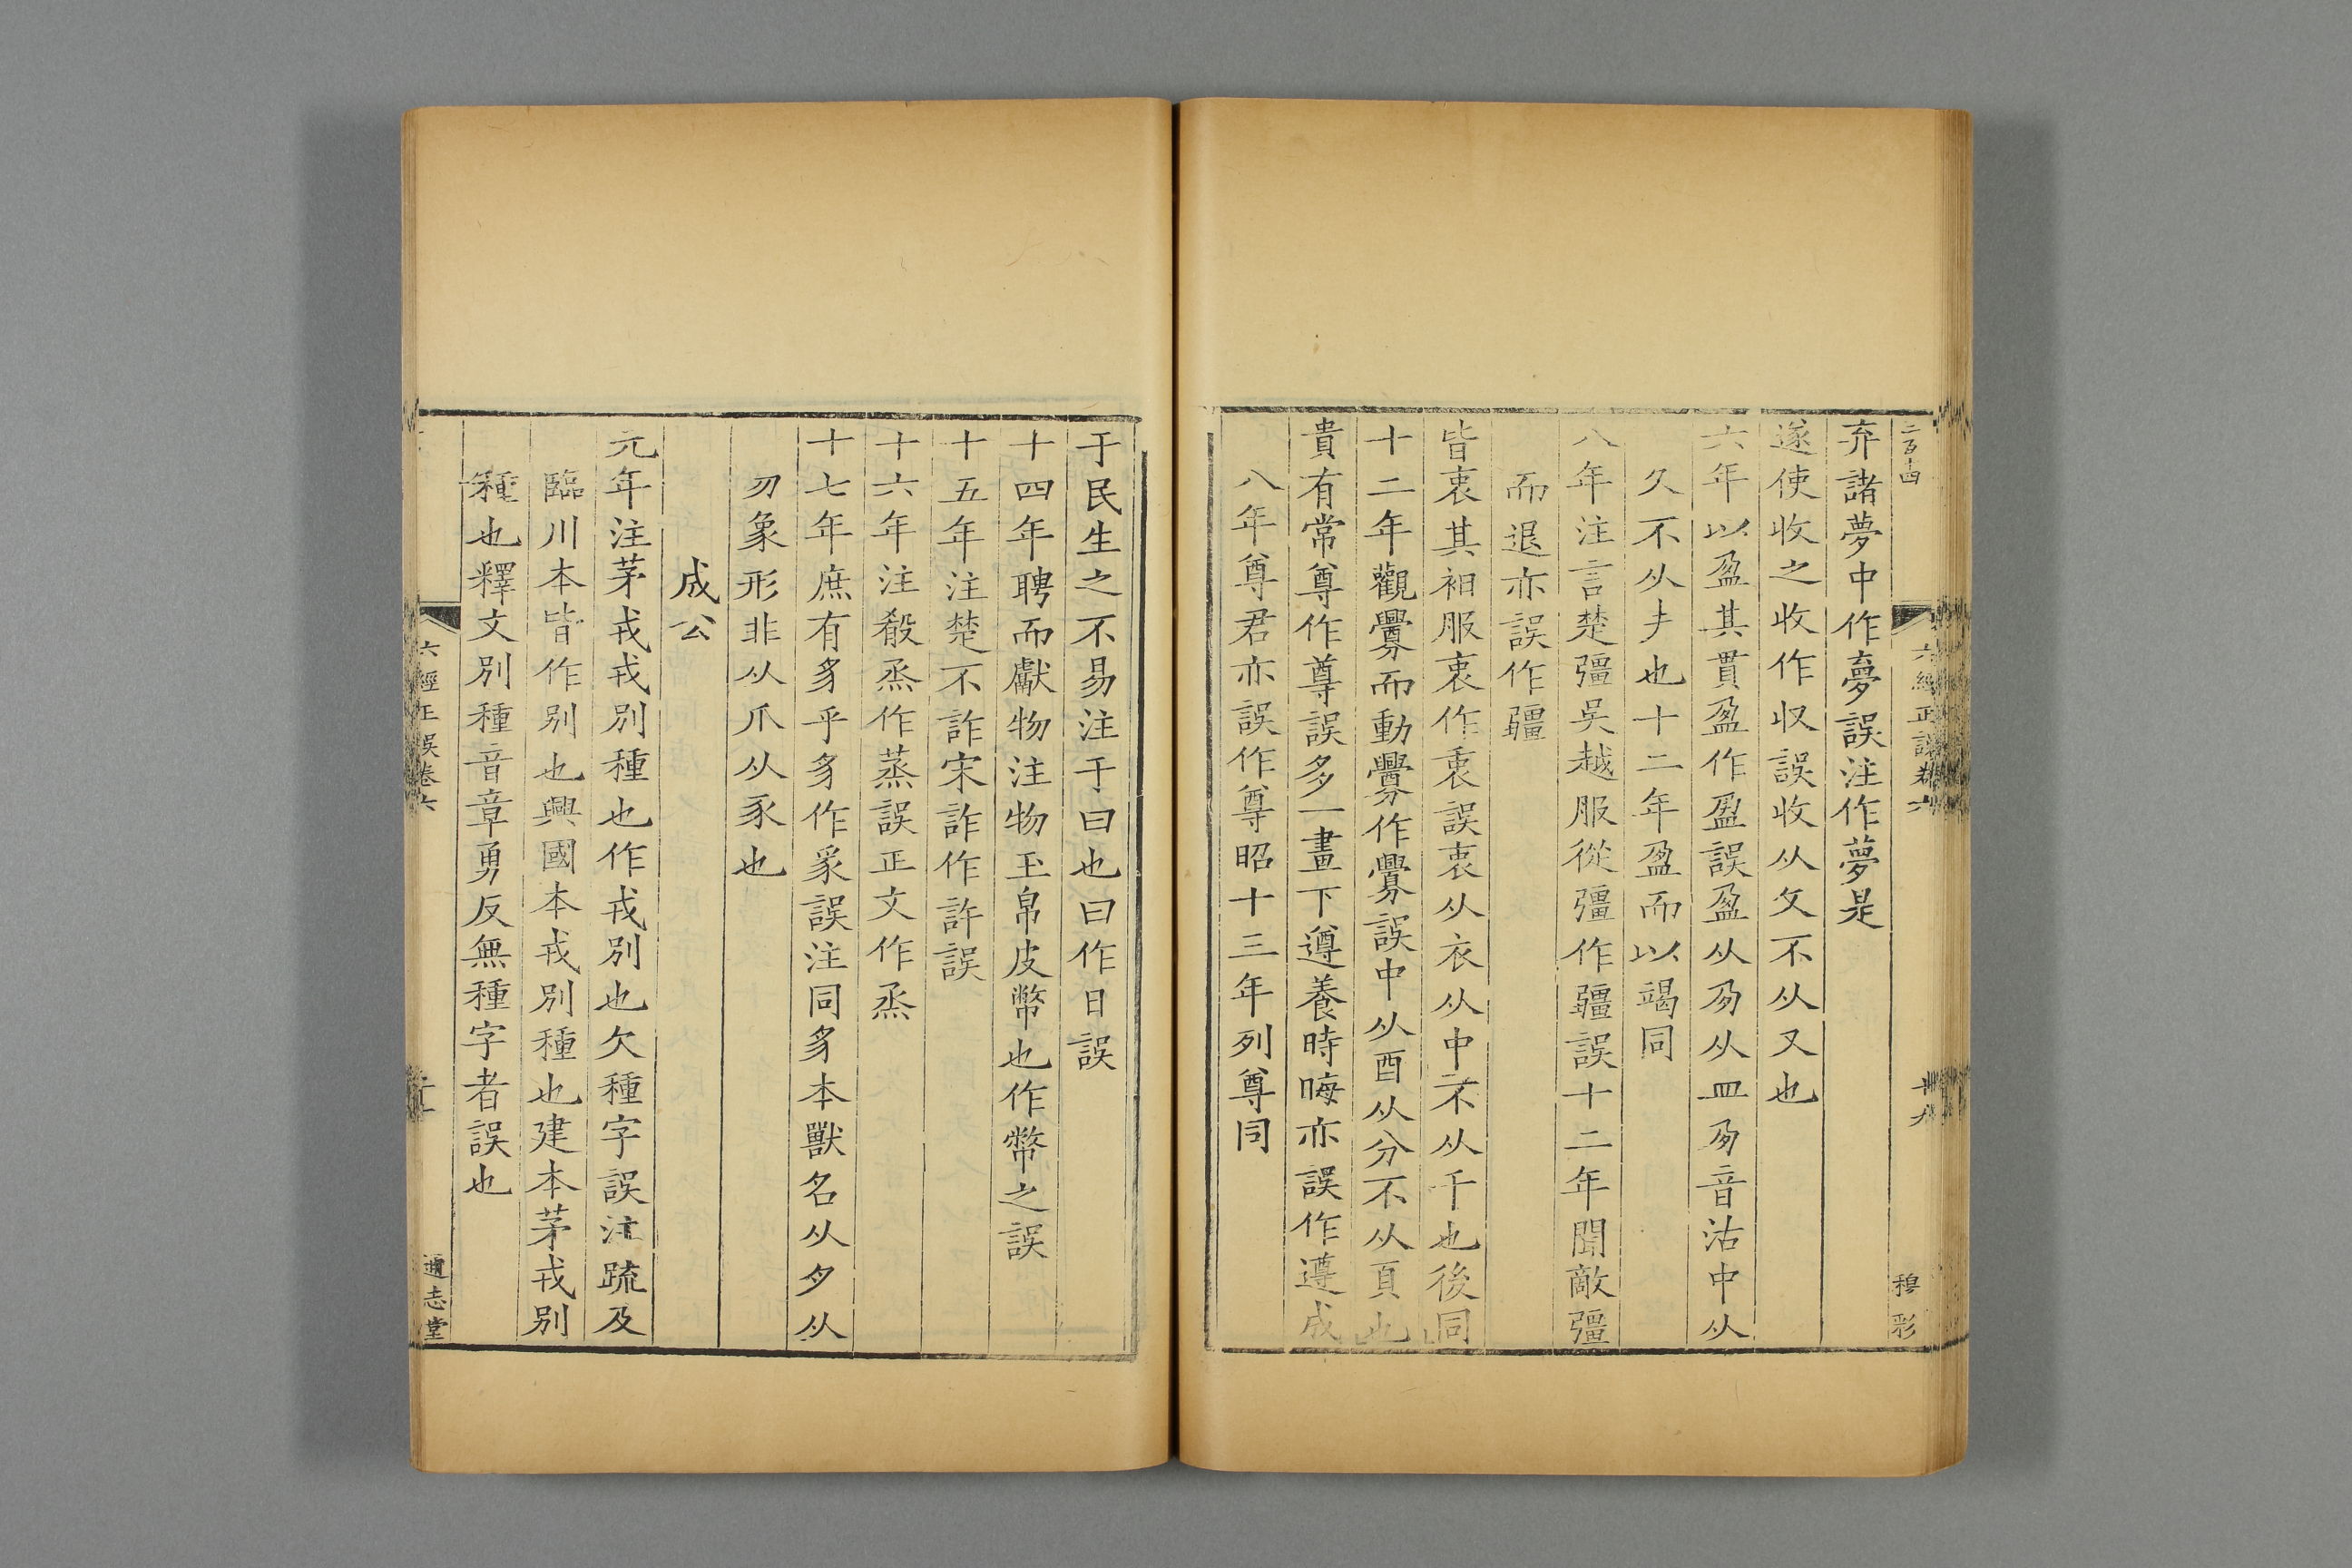 二百四
六經正誤卷六
十九
穆彩
弃諸夢中作夣誤注作夢是
遂使收之收作収誤收从攵不从又也
六年以盈其貫盈作盁誤盈从夃从皿夃音沽中从
久不从𠂇也十二年盈而以竭同
八年注言楚彊吳越服從彊作疆誤十二年聞敵彊
而退亦誤作疆
皆衷其衵服衷作衷誤衷从衣从中不从千也後同
十二年觀釁而動釁作釁誤中从酉从分不从頁也
貴有常尊作尊誤多一畫下遵養時晦亦誤作遵成
八年尊君亦誤作尊昭十三年列尊同
于民生之不易注于曰也曰作日誤
十四年聘而獻物注物玉帛皮幣也作幣之誤
十五年注楚不詐宋詐作許誤
十六年注殽烝作蒸誤正文作烝
十七年庶有豸乎豸作豖誤注同豸本獸名从夕从
勿象形非从爪从豕也
成公
元年注茅戎戎別種也作戎別也欠種字誤注疏及
臨川本皆作別也興國本戎別種也建本茅戎別
種也釋文別種音章勇反無種字者誤也
六經正誤卷六
二十
通志堂